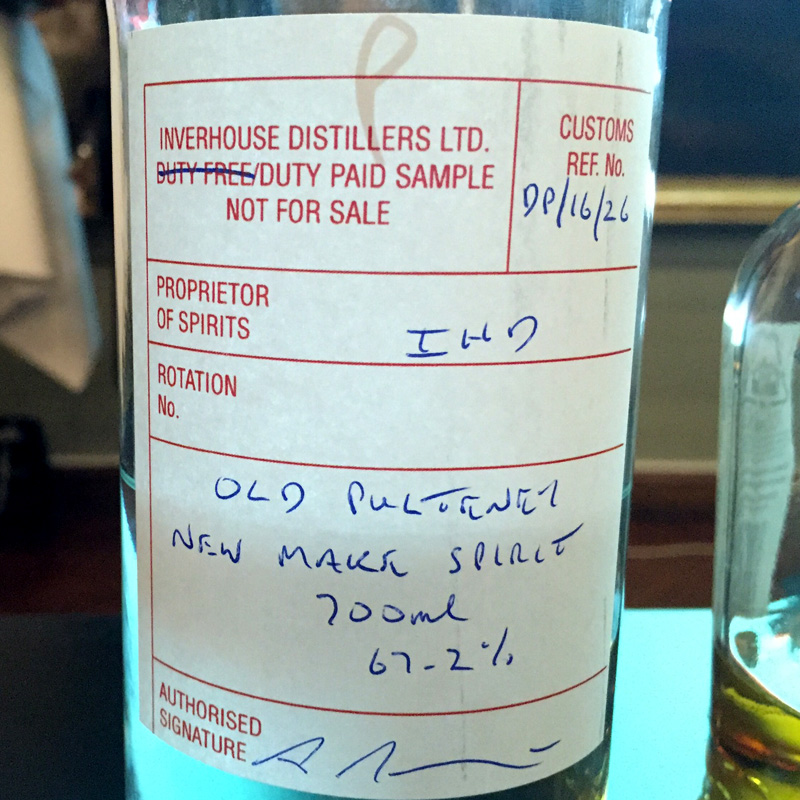 INVERHOUSE DISTILLERS LTD.
DUTY FREE/DUTY PAID SAMPLE
NOT FOR SALE
CUSTOMS
REF. No.
DP/16/26
PROPRIETOR
OF SPIRITS
IHD
ROTATION
No.
OLD PULTENEY
NEW MAKE SPIRIT
700ml
67.2%
AUTHORISED
SIGNATURE